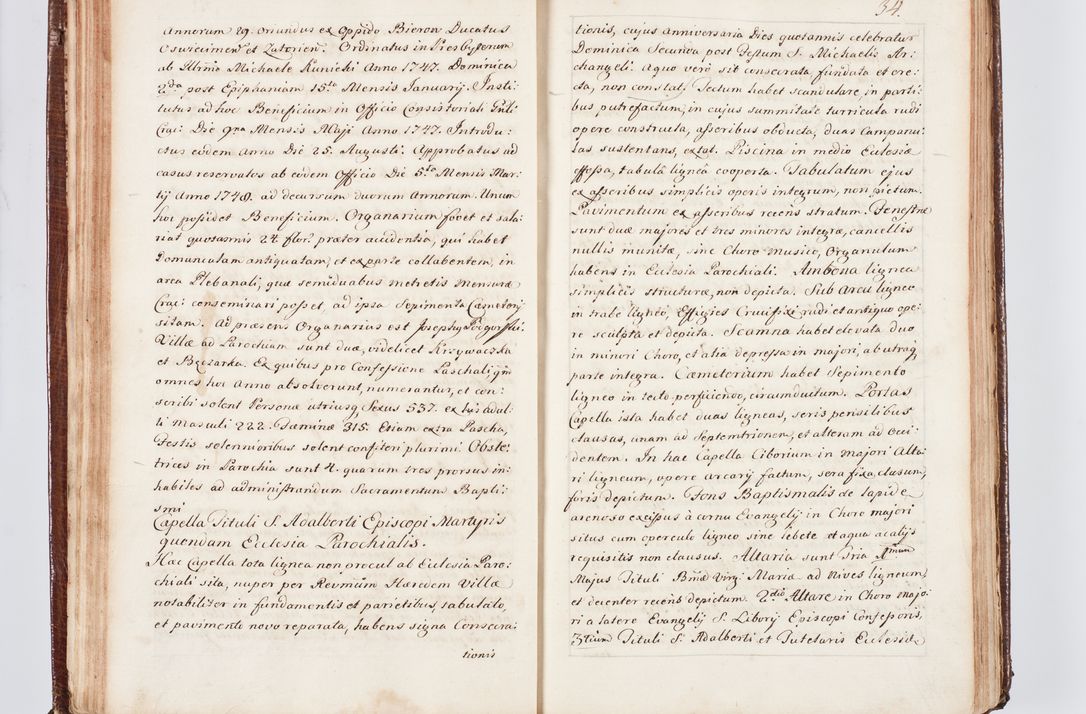 annorum 29. oriundus ex Oppido Bieron Ducatus
Osviecimen et Zatorien. Ordinatus in Presbyterum
ab Illmo Michaele Kunicki Anno 1747. Dominica
2da post Epiphaniam 15ta Mensis January. Insti:
tutus ad hoc Beneficium in Officio Consistoriali Gnli
Crac: Die 9na Mensis Maji Anno 1747. Introdu:
ctus eodem Anno Die 25. Augusti. Approbatus ad
casus reservatos ab eodem Officio Die 5ta Mensis Mar:
tij Anno 1748. ad decursum duorum Annorum. Unum
hoc possidet Beneficium. Organarium fovet et sala:
riat quotannis 24 flor: præter accidentia, qui habet
Domunculam antiquatam, et ex parte collabentem, in
area Plebanali, quæ semiduabus metretis mensuræ
Crac: conseminari posset, ad ipsa Sepimenta Cæmeterij
sitam. Ad præsens Organarius est Josephus Podgorski.
Villæ ad Parochiam sunt duæ, videlicet Krzywaczka
et Bęczarka. Ex quibus pro Confessione Paschali qui
omnes hoc Anno absolverunt, numerantur, et con:
scribi solent Personæ utriusq Sexus 537. ex his adul:
ti masculi 222. Fæminæ 315. Etiam extra Pascha,
Festis solennioribus solent confiteri plurimi. Obste:
trices in Parochia sunt 4. quarum tres prorsus in:
habiles ad administrandum Sacramentum Bapti:
smi
Capella Tituli S. Adalberti Episcopi Martyris
quondam Ecclesia Parochialis.
Hac Capella tota lignea non procul ab Ecclesia Paro:
chiali sita, nuper per Revmum Hæredem Villæ
notabiliter in fundamentis et parietibus, tabulato,
et pavimento novo reparata, habens signa Consecra:
tionis
34.
tionis, cujus anniversaria Dies quotannis celebratur
Dominica Secunda post Festum S. Michaelis Ar:
changeli. A quo verò sit consecrata, fundata et ere:
cta, non constat, Tectum habet scandulare, in parti:
bus putrefactum, in cujus summitate turricula rudi
opere constructa, asseribus obducta, duas Campanu:
las sustentans, extat. Piscina in medio Ecclesiæ
effossa, tabulâ ligneâ cooperta. Tabulatum ejus
ex asseribus simplicis operis integrum, non pictum.
Pavimentum ex asseribus recens stratum. Fenestræ
sunt duæ majores et tres minores integræ, cancellis
nullis munitæ, sine Choro musico, Organulum
habens in Ecclesia Parochiali. Ambona lignea
simplicis structuræ, non depicta. Sub Arcu ligneo
in trabe ligneo, Effigies Crucifixi rudi et antiquo ope:
re sculpta et depicta. Scamna habet elevata duo
in minori Choro, et alia depressa in majori, ab utraq
parte integra. Cæmeterium habet Sepimento
ligneo in tecto perficiendo, circumductum. Portas
Capella ista habet duas ligneas, seris pensilibus
clausas, unam ad Septemtrionem, et alteram ad Occi:
dentem. In hac Capella Ciborium in majori Alta:
ri ligneum, opere arcary factum, sera fixa clausum,
foris depictum. Fons Baptismalis de lapide
arenoso excissus à cornu Evangelij in Choro majori
situs cum operculo ligneo sine lebete et aqua ac alijs
requisitis non clausus. Altaria sunt tria 1mum
Majus Tituli Bmæ Virg: Mariæ ad Nives ligneum,
et decenter recens depictum. 2dum Altare in Choro majo:
ri a latere Evangelij S. Liborij Episcopi Confessoris,
3tium Tituli S. Adalberti et Tutelaris Ecclesiæ